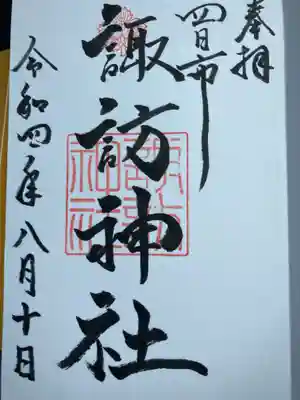 奉拝
四日市
諏訪神社
令和四年八月十日